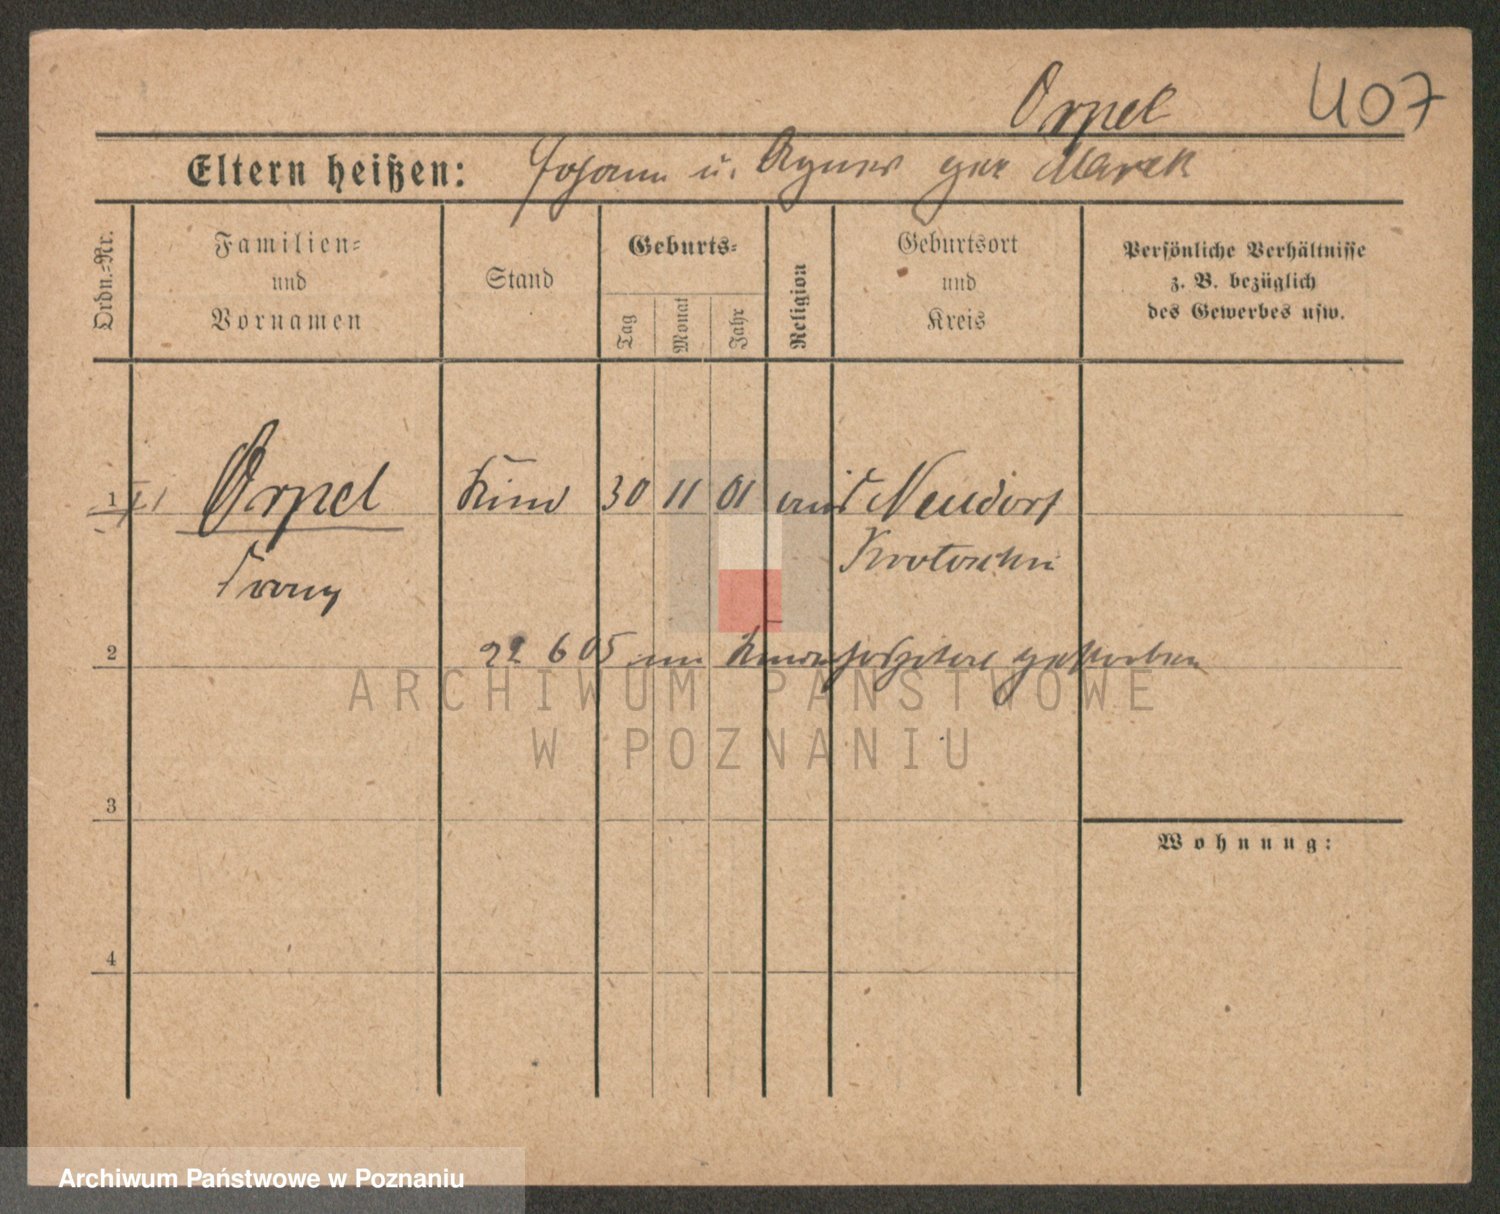 Orpel 407
Eltern heißen: Johann u. Agnes geb Marek
Ordn.-Nr.
Familien- und Vornamen
Stand
Geburts-
Tag
Monat
Jahr
Religion
Geburtsort und Kreis
Persönliche Verhältnisse
z. B. bezüglich
des Gewerbes usw.
1 Orpel Kind 30 11 01 Neudorf
Franz Krotoschin
2
22 6 05 im gestorben
ARCHIWUM PAŃSTWOWE
W POZNANIU
3
Wohnung:
4
Archiwum Państwowe w Poznaniu